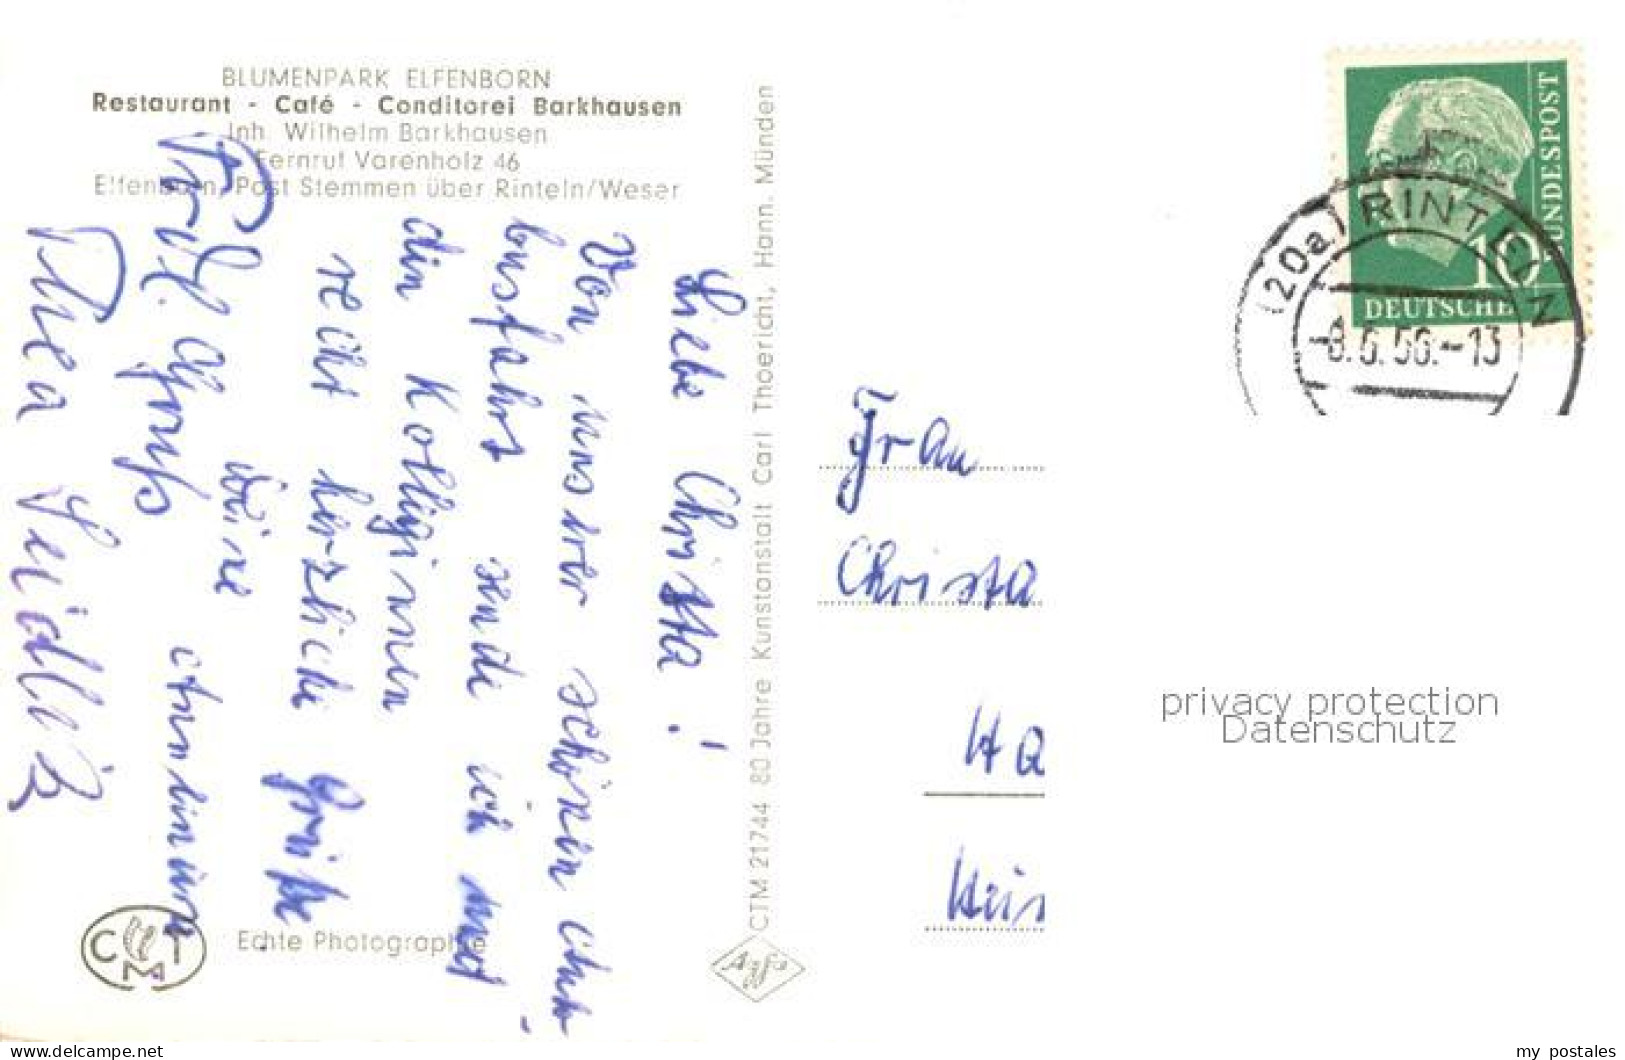 BLUMENPARK ELFENBORN
Restaurant - Café - Conditorei Barkhausen
Inh. Wilhelm Barkhausen
Fernruf Varenholz 46
Elfenborn, Post Stemmen über Rinteln/Weser
Liebe Christa!
Von unsrer schönen Auto-
busfahrt sende ich und
die Kolleginnen
recht herzliche Grüße.
Deine Annlinure
Frdl. Gruß
Thea Seidlitz
Echte Photographie
CTM
CTM 21744 80 Jahre Kunstanstalt Carl Thoericht, Hann. Münden
Agfa
DEUTSCHE
BUNDESPOST
10
(20a) RINTELN
-8.6.56.-13
Frau
Christa
Ha
privacy protection
Datenschutz
delcampe.net
my_postales